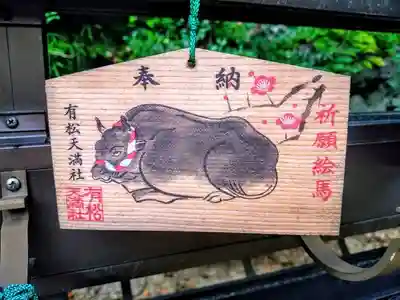 奉納
祈願絵馬
有松天満社
有松
天満社